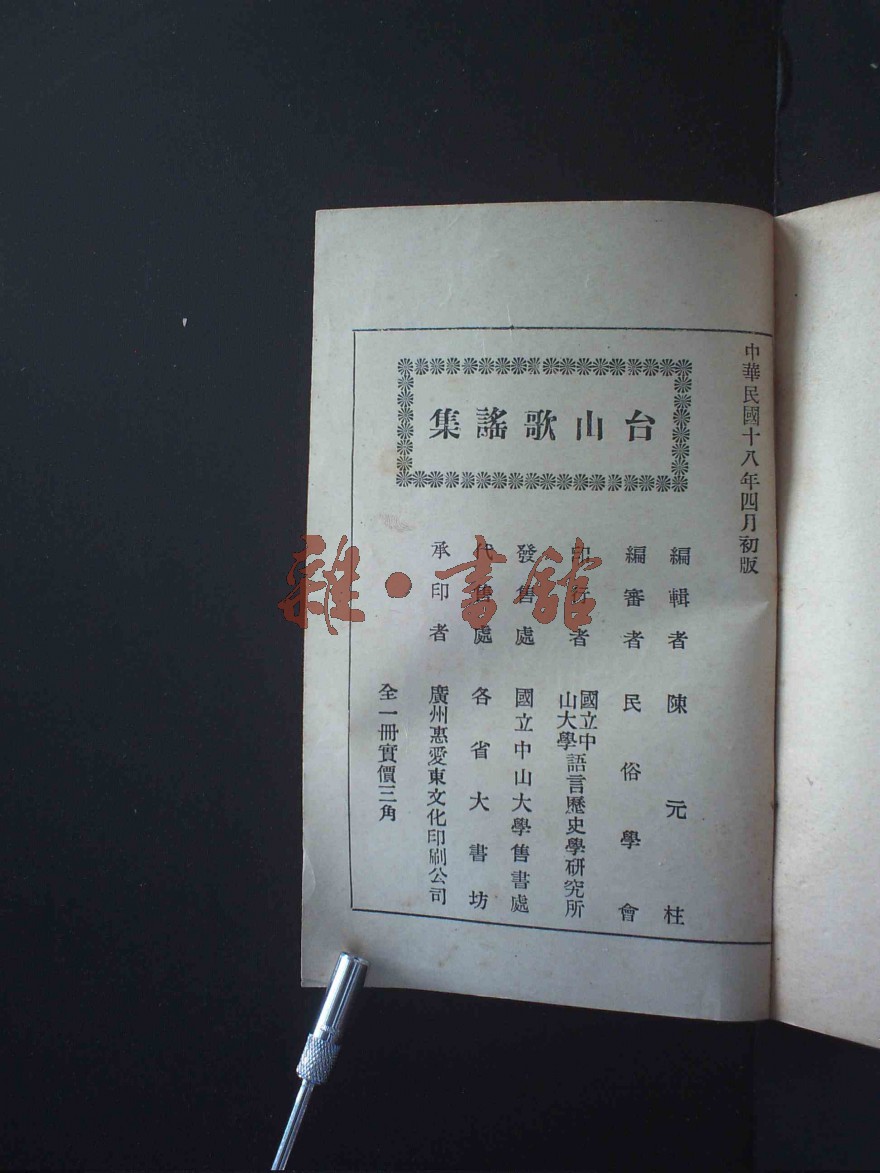 中華民國十八年四月初版
台山歌謠集
編輯者 陳元柱
編審者 民俗學會
印行者 國立中山大學語言歷史學研究所
發售處 國立中山大學售書處
代售處 各省大書坊
承印者 廣州惠愛東文化印刷公司
全一冊實價三角
雜·書館